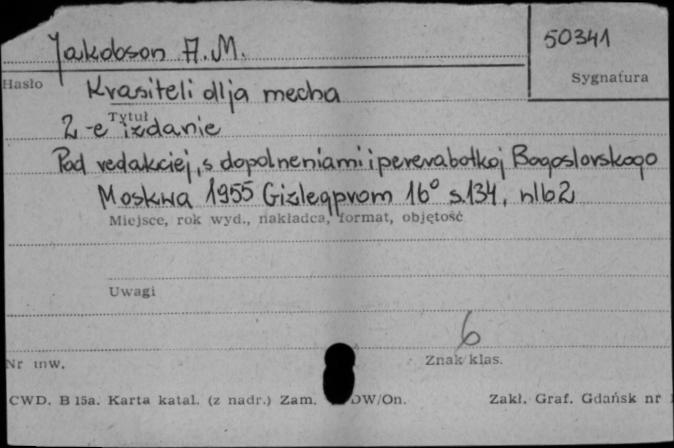 Jakobson A.M.
50341
Hasło
Sygnatura
Krasiteli dlja mecha
Tytuł
2-e izdanie
Pod redakciej, s dopolneniami i pererabotkoj Bogoslovskogo
Moskwa 1955 Gizlegprom 16° s.134, nlb 2
Miejsce, rok wyd., nakładca, format, objętość
Uwagi
6
Nr inw.
Znak klas.
CWD. B 15a. Karta katal. (z nadr.) Zam. DW/On. Zakł. Graf. Gdańsk nr